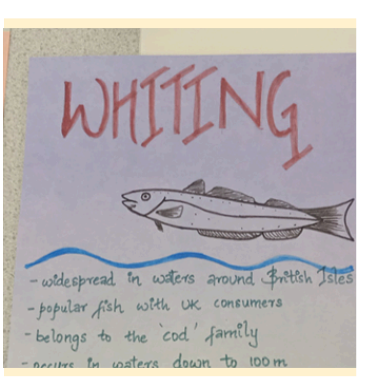 WHITING
- widespread in waters around British Isles
- popular fish with UK consumers
- belongs to the 'cod' family
- occurs in waters down to 100m